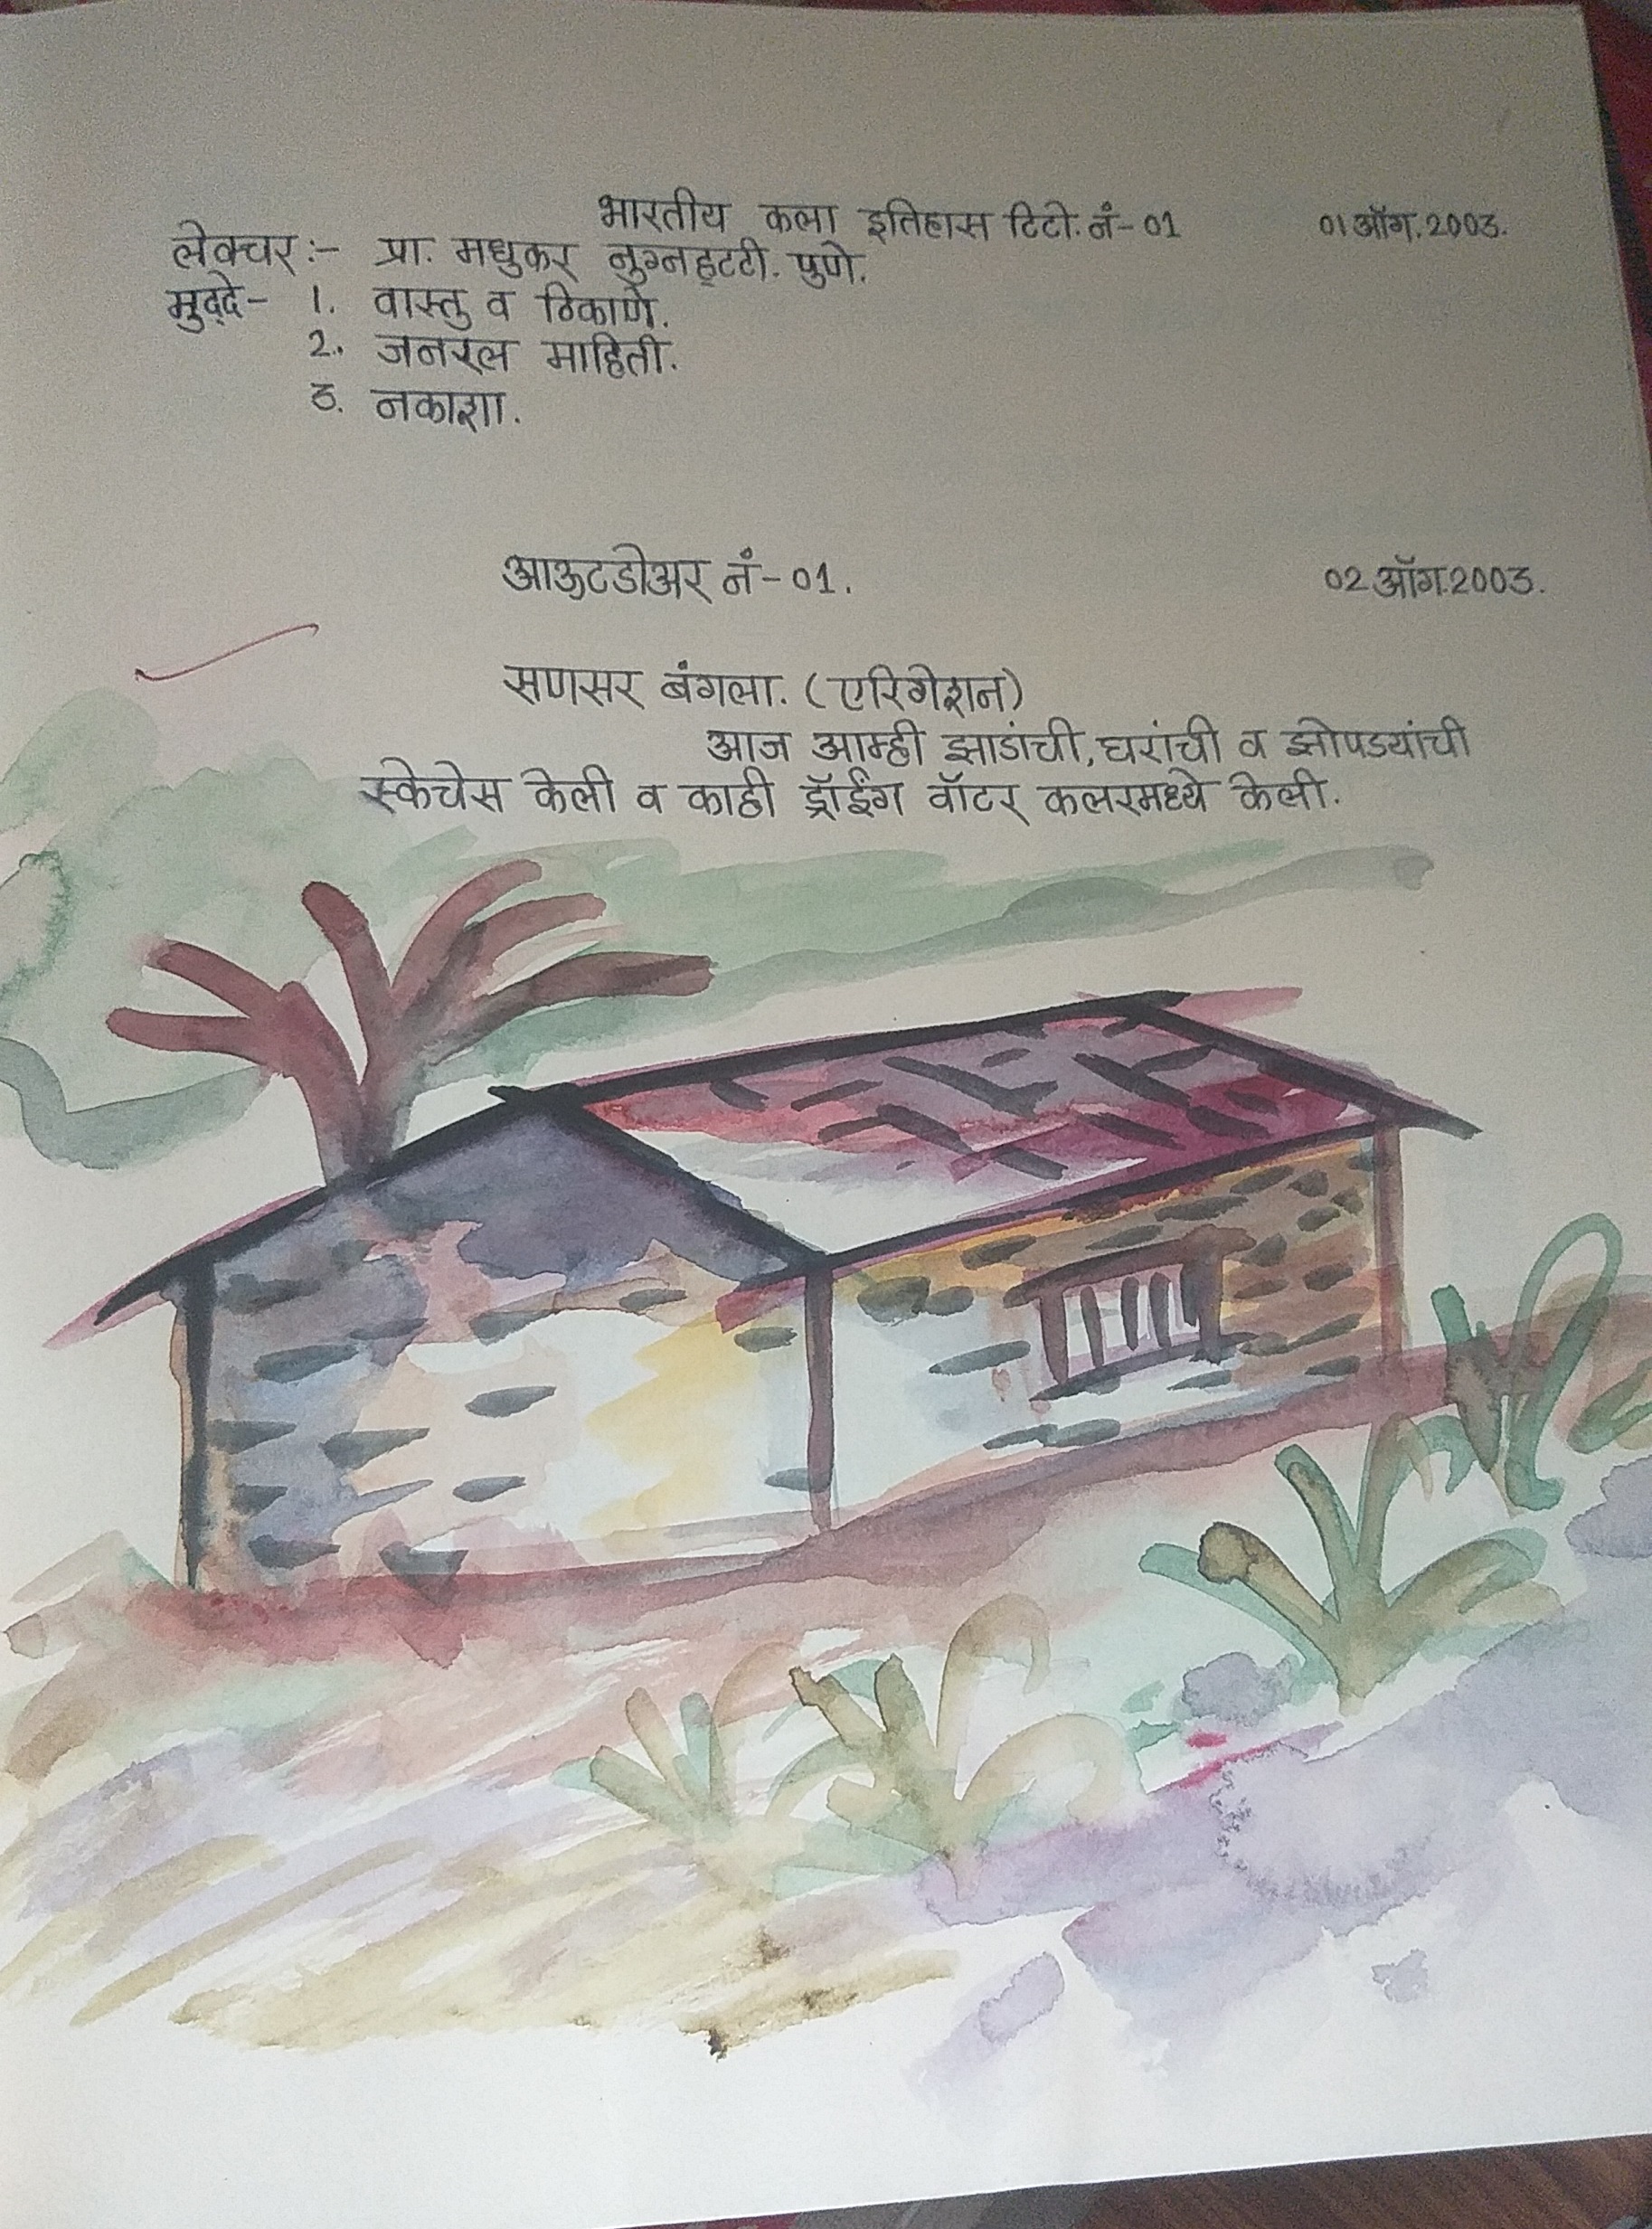 भारतीय कला इतिहास टिटी. नं-01 01 ऑग. 2003.
लेक्चर :- प्रा. मधुकर नुग्नहट्टी. पुणे.
मुद्दे- 1. वास्तु व ठिकाणे.
2. जनरल माहिती.
3. नकाशा.
आऊटडोअर नं-01. 02 ऑग. 2003.
सणसर बंगला. (एरिगेशन)
आज आम्ही झाडांची, घरांची व झोपडयांची
स्केचेस केली व काही ड्रॉईंग वॉटर कलरमध्ये केली.